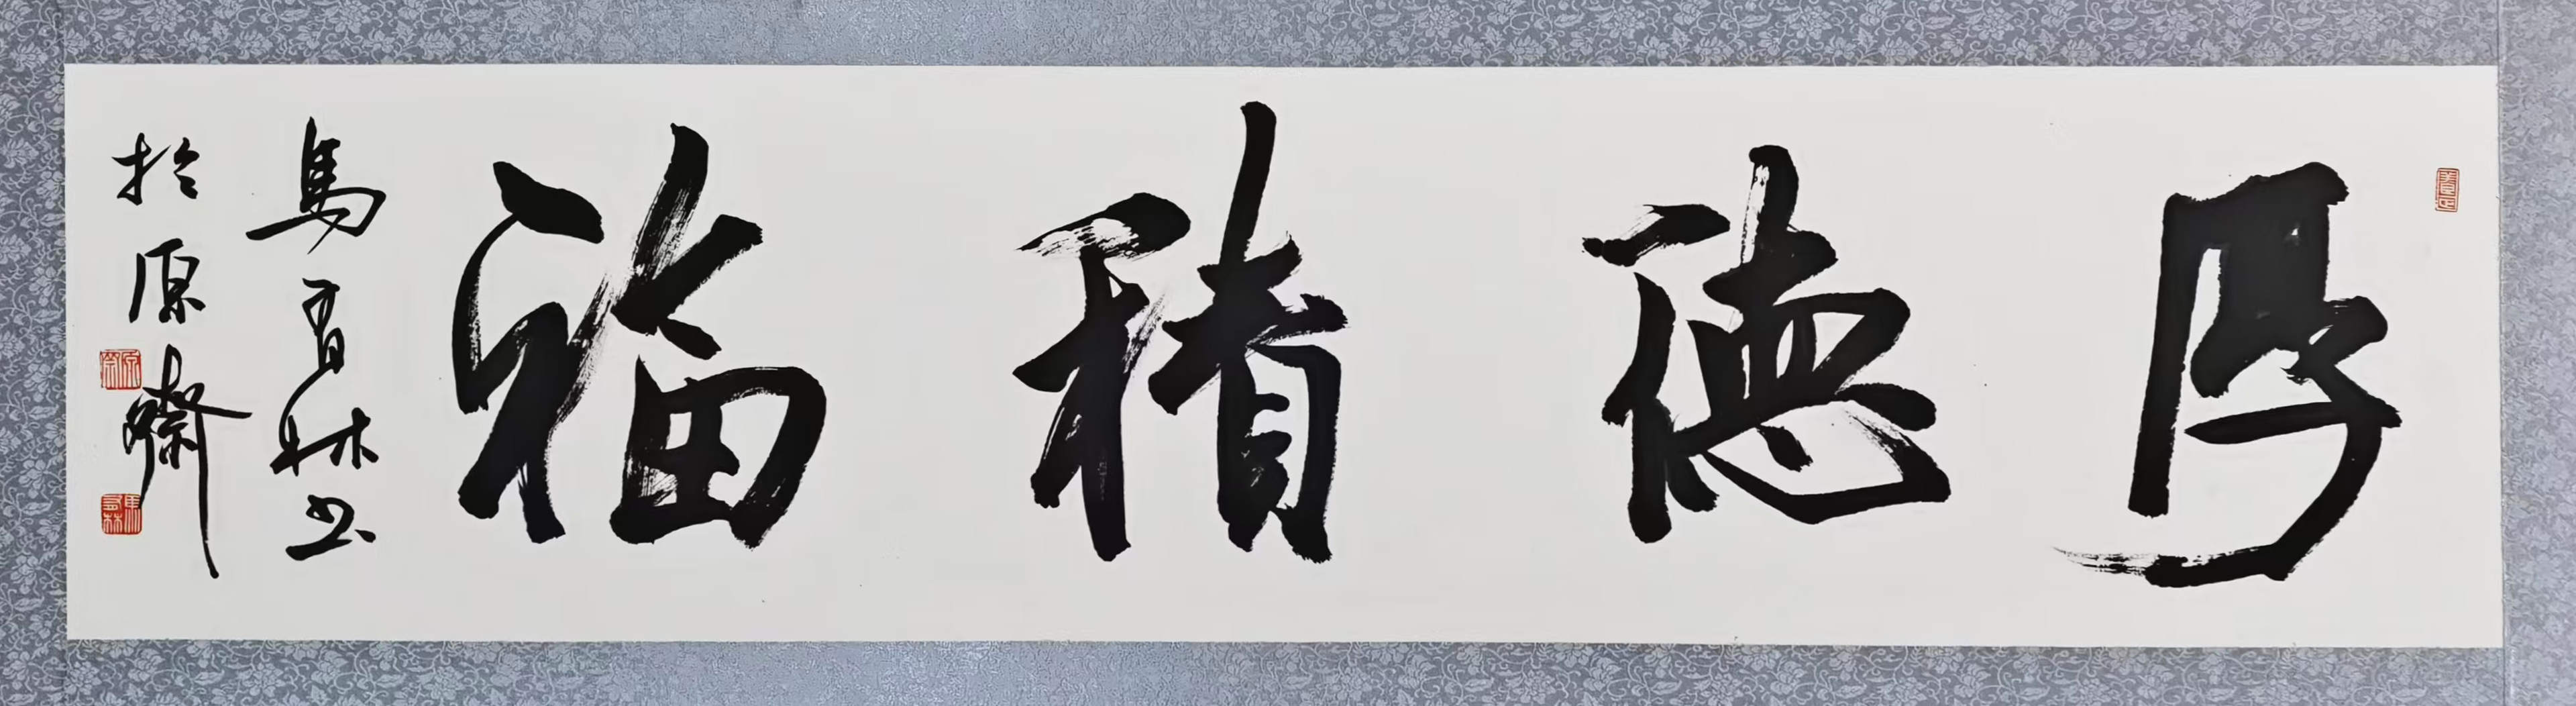 厚德積福
馬有林书
於原齋